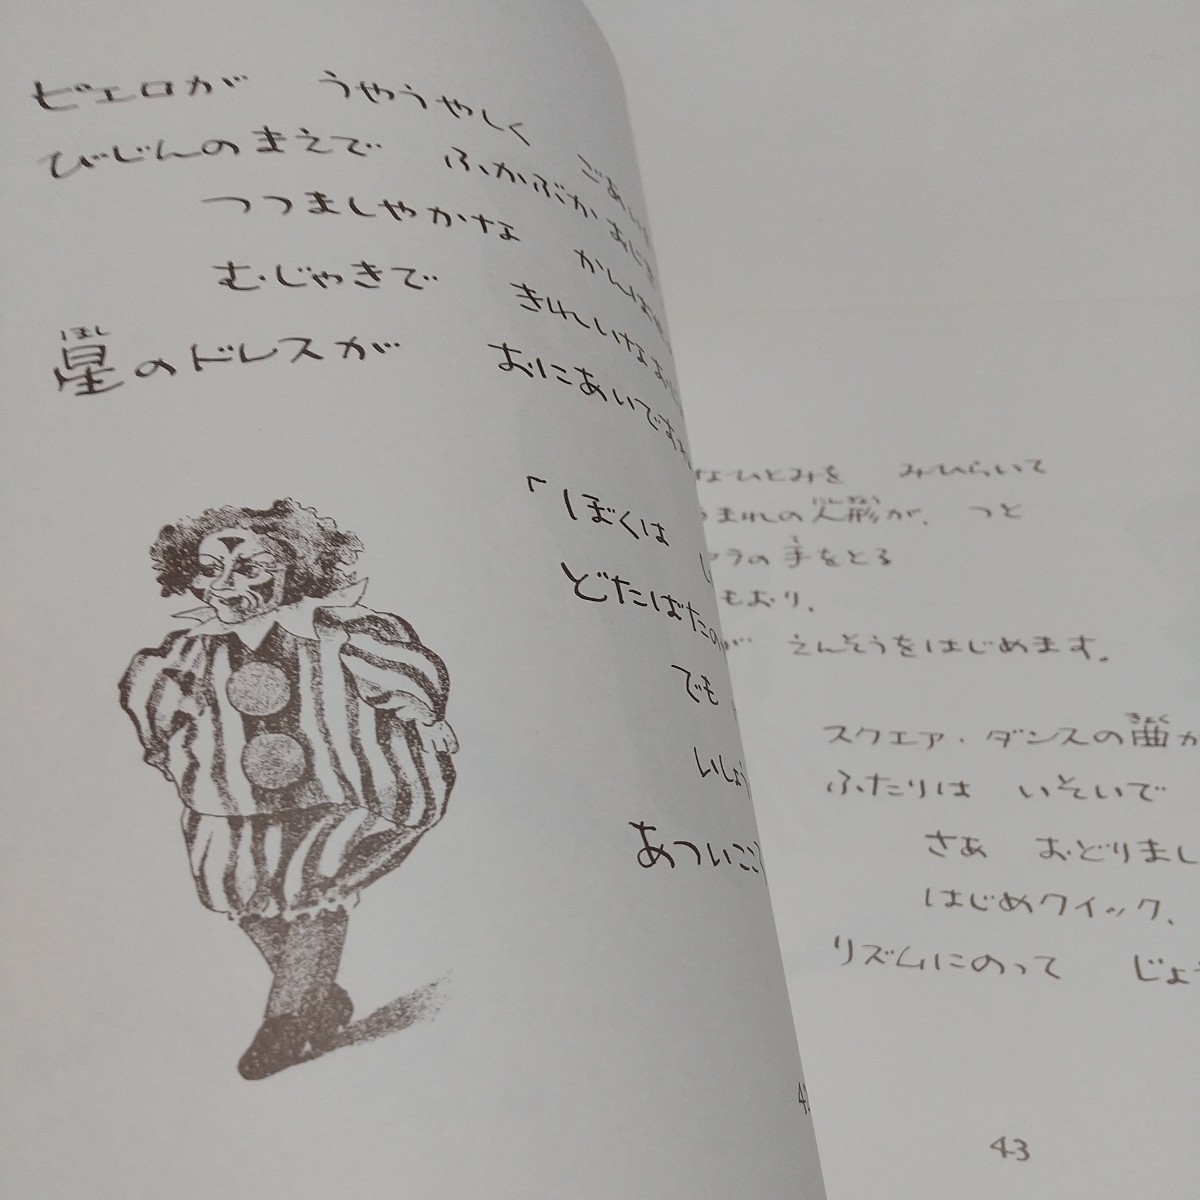 ピエロが うやうやしく ごあい
びじんのまえで ふかぶか おじ
つつましやかな かんば
むじゃきで きれいなお
星のドレスが おにあいですね
ほし
「ぼくは し
どたばたの
でも
いしょう
あついここ
42
なひとみを みひらいて
まれの人形が、つと
にんぎょう
ラの手をとる
て
もおり、
が えんそうをはじめます。
スクエア・ダンスの曲が
きょく
ふたりは いそいで
さあ おどりまし
はじめクイック、
リズムにのって じょう
43